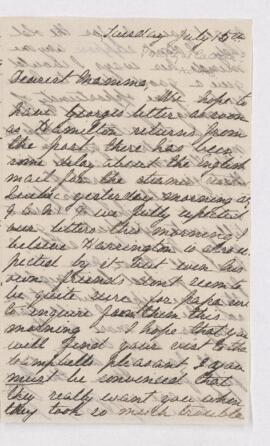 Tuesday July 15th
Dearest Mamma,
We hope to
have Georges letter as soon
as Hamilton returns from
the post there has been
some delay about the English
mail for the steamer
yesterday morning &
we fully expected
our letters this morning. I
believe Harrington is also ex
pected by it, but even his
own friends dont seem to
be quite sure, for papa
to enquire from them this
morning. I hope that you
will find your visit to the
Campbells pleasant, & you
must be convinced that
they really want you when
they took so much trouble